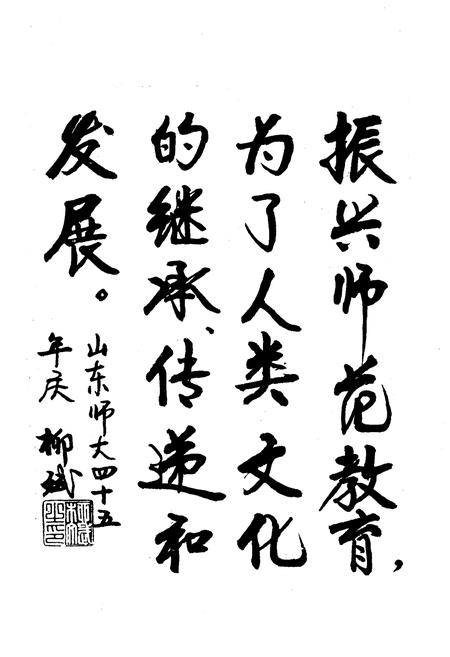 振兴师范教育，
为了人类文化
的继承、传递和
发展。
山东师大四十五
年庆 柳斌
柳斌之印